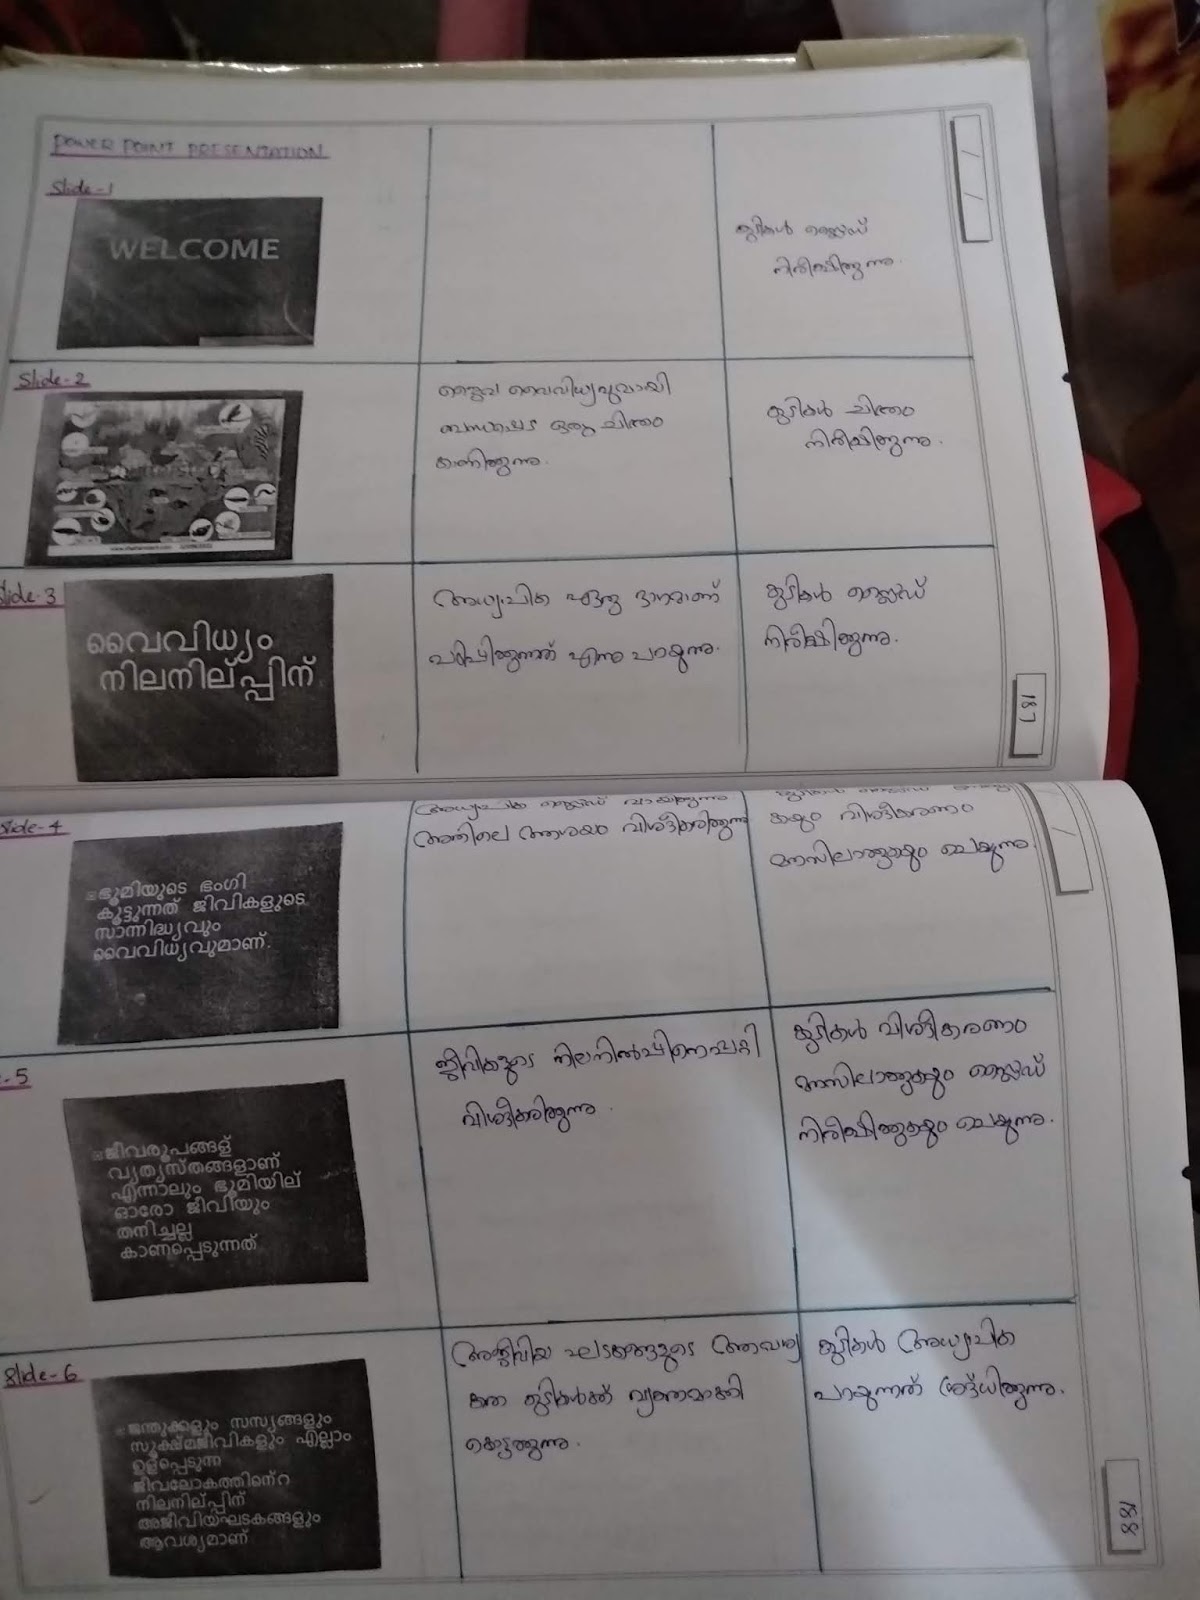 POWER POINT PRESENTATION
Slide-1
WELCOME
കുട്ടികൾ സ്ലൈഡ്
നിരീക്ഷിക്കുന്നു.
Slide-2
ജൈവ വൈവിധ്യവുമായി
ബന്ധപ്പെട്ട ഒരു ചിത്രം
കാണിക്കുന്നു.
കുട്ടികൾ ചിത്രം
നിരീക്ഷിക്കുന്നു.
Slide-3
വൈവിധ്യം
നിലനില്പ്പിന്
അധ്യാപിക ഏതു ഭാഗമാണ്
പഠിപ്പിക്കുന്നത് എന്നു പറയുന്നു.
കുട്ടികൾ സ്ലൈഡ്
നിരീക്ഷിക്കുന്നു.
187
Slide-4
ഭൂമിയുടെ ഭംഗി
കൂട്ടുന്നത് ജീവികളുടെ
സാന്നിദ്ധ്യവും
വൈവിധ്യവുമാണ്.
അധ്യാപിക സ്ലൈഡ് വായിക്കുന്നു.
അതിലെ ആശയം വിശദീകരിക്കുന്നു
കുട്ടികൾ സ്ലൈഡ്
കയും വിശദീകരണം
മനസിലാക്കുകയും ചെയ്യുന്നു.
-5
ജീവരൂപങ്ങള്
വ്യത്യസ്തങ്ങളാണ്
എന്നാലും ഭൂമിയില്
ഓരോ ജീവിയും
തനിച്ചല്ല
കാണപ്പെടുന്നത്
ജീവികളുടെ നിലനിൽപ്പിനെപ്പറ്റി
വിശദീകരിക്കുന്നു.
കുട്ടികൾ വിശദീകരണം
മനസിലാക്കുകയും സ്ലൈഡ്
നിരീക്ഷിക്കുകയും ചെയ്യുന്നു.
Slide-6
ജന്തുക്കളും സസ്യങ്ങളും
സൂക്ഷ്മജീവികളും എല്ലാം
ഉള്പ്പെടുന്ന
ജീവലോകത്തിന്റെ
നിലനില്പ്പിന്
അജീവിയഘടകങ്ങളും
ആവശ്യമാണ്
അജീവിയ ഘടകങ്ങളുടെ ആവശ്യ
കത കുട്ടികൾക്ക് വ്യക്തമാക്കി
കൊടുക്കുന്നു.
കുട്ടികൾ അധ്യാപിക
പറയുന്നത് ശ്രദ്ധിക്കുന്നു.
188